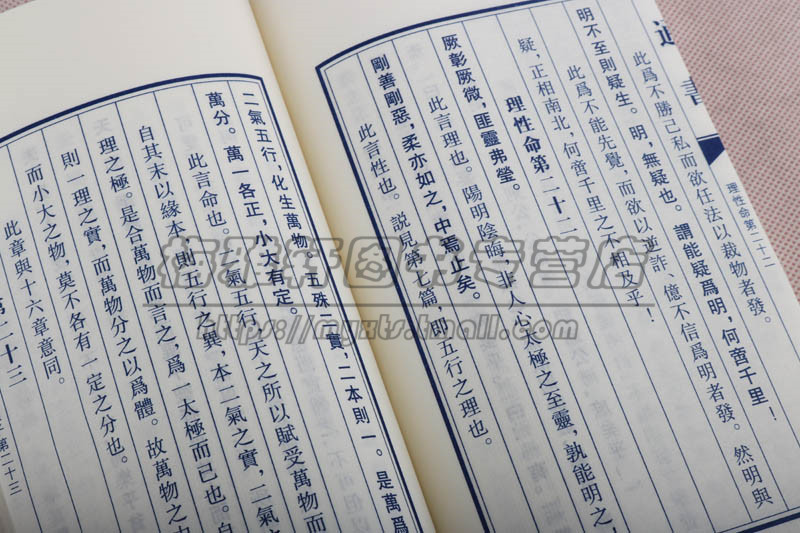 通書
理性命第二十二
此爲不勝己私而欲任法以裁物者發。
明不至則疑生。明，無疑也。謂能疑爲明，何啻千里！
此爲不能先覺，而欲以逆詐、億不信爲明者發。然明與
疑，正相南北，何啻千里之不相及乎！
理性命第二十二
厥彰厥微，匪靈弗瑩。
此言理也。陽明陰晦，非人心太極之至靈，孰能明之
剛善剛惡，柔亦如之，中焉止矣。
此言性也。説見第七篇，即五行之理也。
二氣五行，化生萬物。五殊二實，二本則一。是萬爲
萬分。萬一各正，小大有定。
此言命也。二氣五行，天之所以賦受萬物而
自其末以緣本，則五行之異，本二氣之實，二氣
理之極。是合萬物而言之，爲一太極而已也。自
則一理之實，而萬物分之以爲體。故萬物之中
而小大之物，莫不各有一定之分也。
此章與十六章意同。
第二十三
第二十三
梅雅轩图书专营店
https://myxts.tmall.com